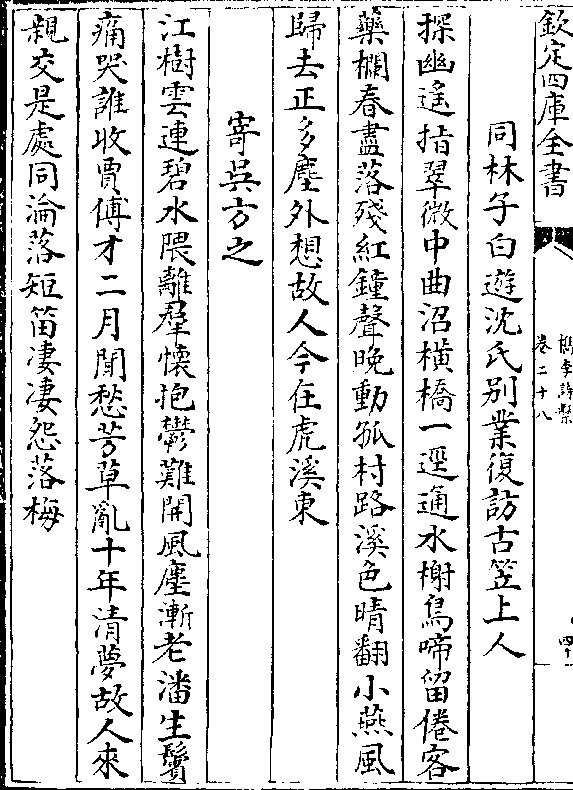 欽定四庫全書
檇李詩繫
卷二十八
同林子白遊沈氏别業復訪古笠上人
探幽遥指翠微中曲沼橫橋一逕通水榭鳥啼留倦客
藥欄春盡落殘紅鐘聲晚動孤村路溪色晴翻小燕風
歸去正多塵外想故人今在虎溪東
寄吳方之
江樹雲連碧水隈離羣懷抱鬱難開風塵漸老潘生鬢
痛哭誰收賈傅才二月閒愁芳草亂十年清夢故人來
親交是處同淪落短笛凄凄怨落梅